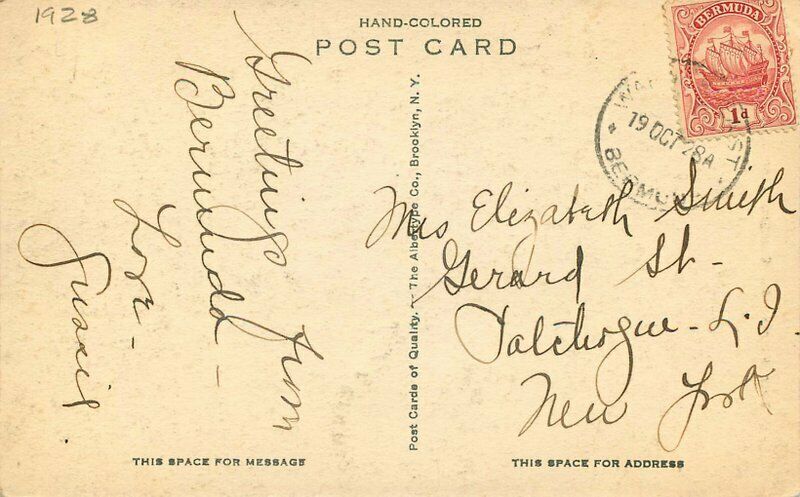 1928
HAND-COLORED
POST CARD
BERMUDA
1d
19 OCT 28A
BERMU
Greetings from
Bermuda -
Love -
Gussie.
Post Cards of Quality. — The Albertype Co., Brooklyn, N. Y.
Mrs Elizabeth Smith
Gerard St -
Patchogue - L.I.
New York
THIS SPACE FOR MESSAGE
THIS SPACE FOR ADDRESS